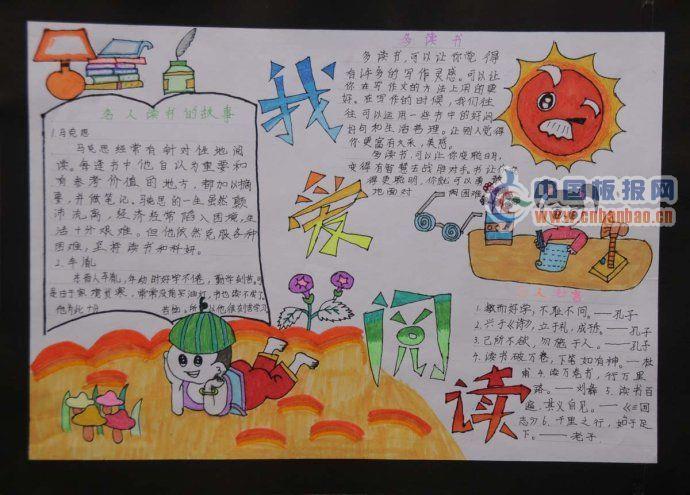 名人读书的故事
1.马克思
马克思经常有针对性地阅
读。每逢书中他自认为重要和
有参考价值的地方,都加以摘
要,并做笔记。马克思的一生虽然颠
沛流离,经济经常陷入困境,生
活十分艰难。但他依然克服各种
困难,坚持读书和科研。
2.车胤
车胤,年幼时好学不倦,勤奋刻苦。可
是由于家境贫寒,常常没有买油灯,书也读不成了。
他为此十分
我爱阅读
多读书
多读书,可以让你觉得
有许多的写作灵感。可以让
你在写作文的方法上用的更
好。在写作的时候,我们往
往可以运用一些书中的好词
好句和生活哲理。让别人觉得
你更富有文采,美感。
多读书,可以让你变聪明,
变得有智慧去战胜对手。书让你
得更聪明,你就可以勇敢
地面对困难
中国板报网
www.cnbanbao.cn
1.敏而好学,不耻下问。——孔子
2.兴于《诗》,立于礼,成于乐。——孔子
3.己所不欲,勿施于人。——孔子
4.读书破万卷,下笔如有神。——杜
甫 4.读万卷书,行万里
路。——刘彝 5.读书百
遍,其义自见。——《三国
志》 6.千里之行,始于足
下。——老子